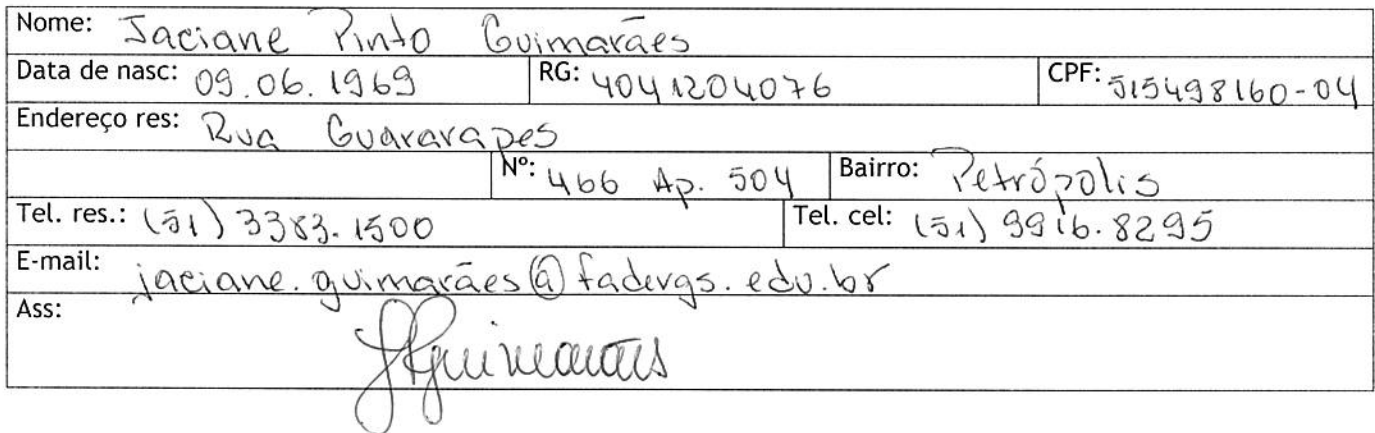 Nome: Jaciane Pinto Guimarães
Data de nasc: 09.06.1969 RG: 4041204076 CPF: 515498160-04
Endereço res: Rua Guararapes
Nº: 466 Ap. 504 Bairro: Petrópolis
Tel. res.: (51) 3383.1500 Tel. cel: (51) 9916.8295
E-mail: jaciane.guimarães@fadergs.edu.br
Ass: JPGuimarães